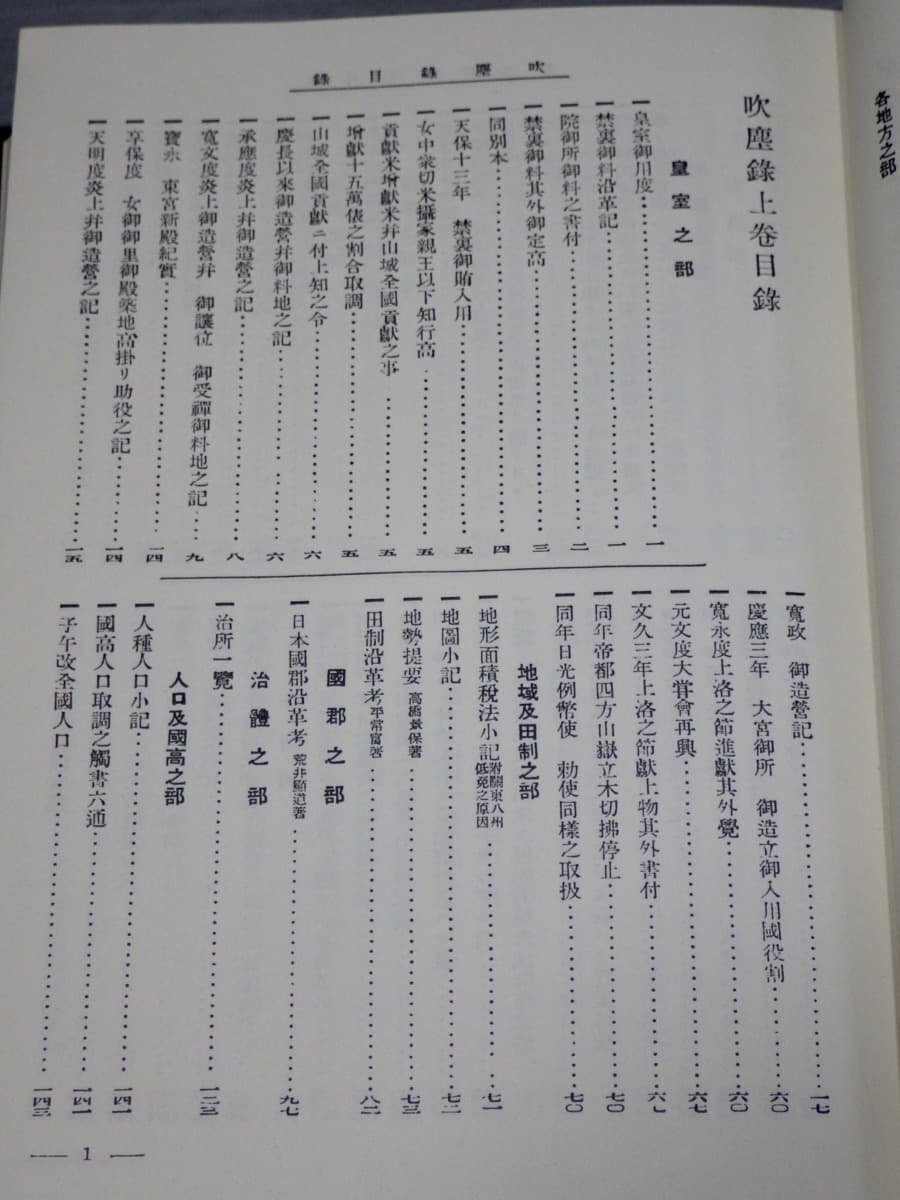 各地方之部
吹塵錄目錄
吹塵錄上卷目錄
皇室之部
一皇室御用度……一
一禁裏御料沿革記……一
一院御所御料之書付……二
一禁裏御料其外御定高……三
一同別本……四
一天保十三年 禁裏御賄入用……五
一女中衆切米攝家親王以下知行高……五
一貢獻米增獻米幷山城全國貢獻之事……五
一增獻十五萬俵之割合取調……五
一山城全國貢獻ニ付上知之令……六
一慶長以來御造營幷御料地之記……六
一承應度炎上幷御造營之記……八
一寬文度炎上御造營幷 御讓位 御受禪御料地之記……九
一寶永 東宮新殿紀實……一四
一享保度 女御御里御殿築地高掛リ助役之記……一四
一天明度炎上幷御造營之記……一五
一寬政 御造營記……一七
一慶應三年 大宮御所 御造立御入用國役割……六〇
一寬永度上洛之節進獻其外覺……六〇
一元文度大甞會再興……六七
一文久三年上洛之節獻上物其外書付……六七
一同年帝都四方山嶽立木切拂停止……七〇
一同年日光例幣使 勅使同樣之取扱……七〇
地域及田制之部
一地形面積稅法小記附關東八州低免之原因……七一
一地圖小記……七二
一地勢提要 高橋景保著……七三
一田制沿革考平常富著……八二
國郡之部
一日本國郡沿革考 荒井顯道著……九七
治體之部
一治所一覽……一三三
人口及國高之部
一人種人口小記……一四一
一國高人口取調之觸書六通……一四一
一子午改全國人口……一四三
1